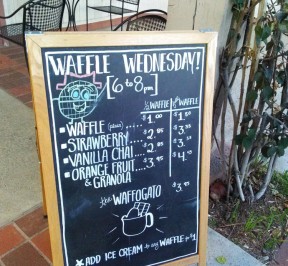 WAFFLE WEDNESDAY!
[6 to 8pm]
½ WAFFLE WAFFLE
WAFFLE (plain)..... $1.00
STRAWBERRY..... $2
VANILLA CHAI..... $2
ORANGE FRUIT & GRANOLA $3
the WAFFOGATO
ADD ICE CREAM to any WAFFLE for $1